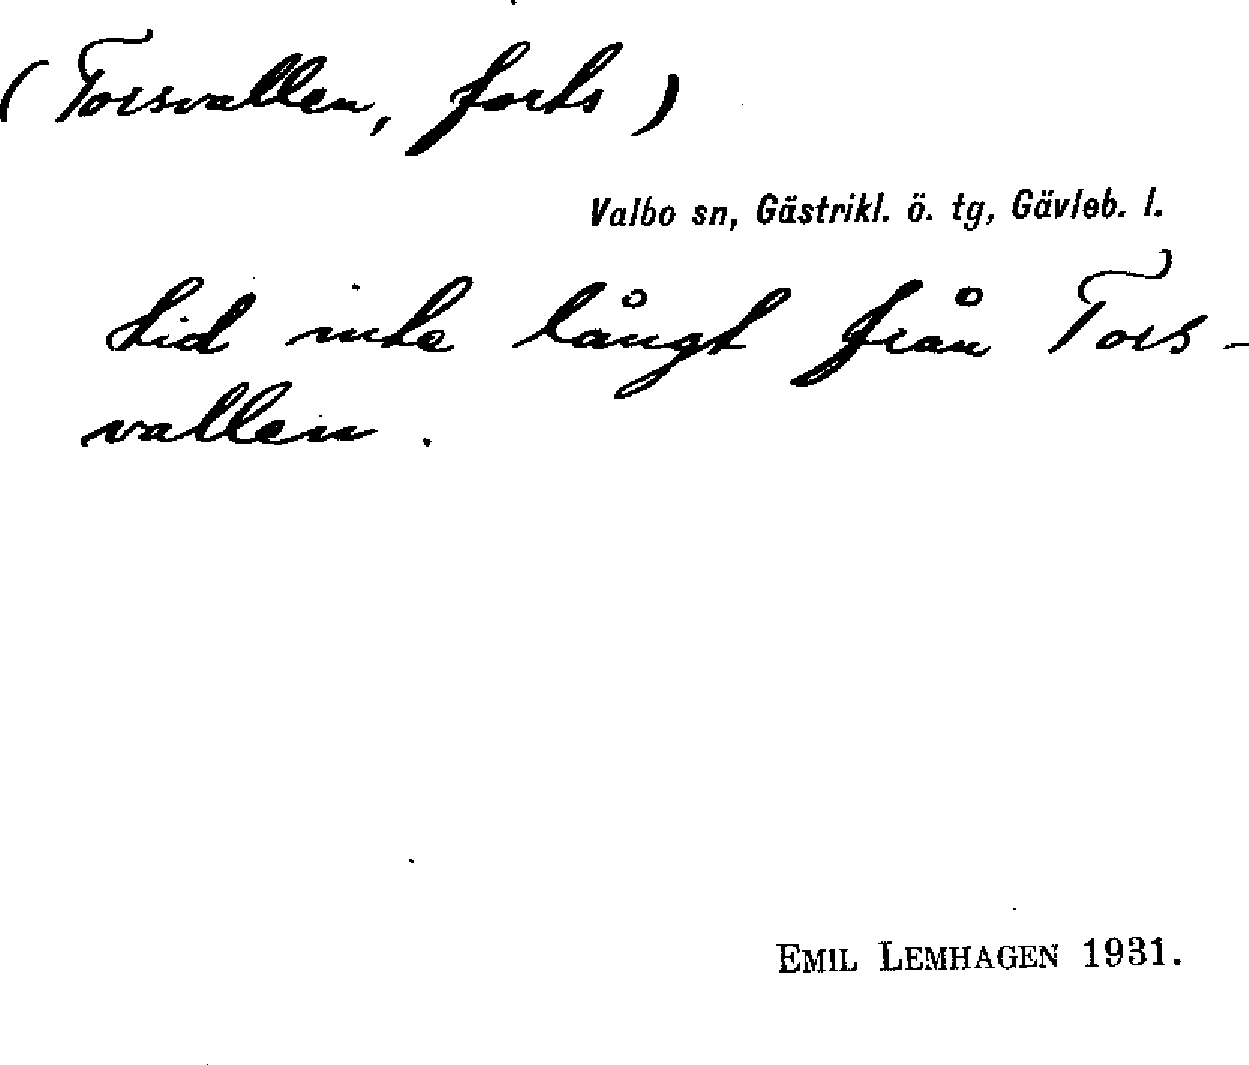 (Torsvallen, forts)
Valbo sn, Gästrikl. ö. tg, Gävleb. l.
tid inte långt från Tors-
vallen.
EMIL LEMHAGEN 1931.